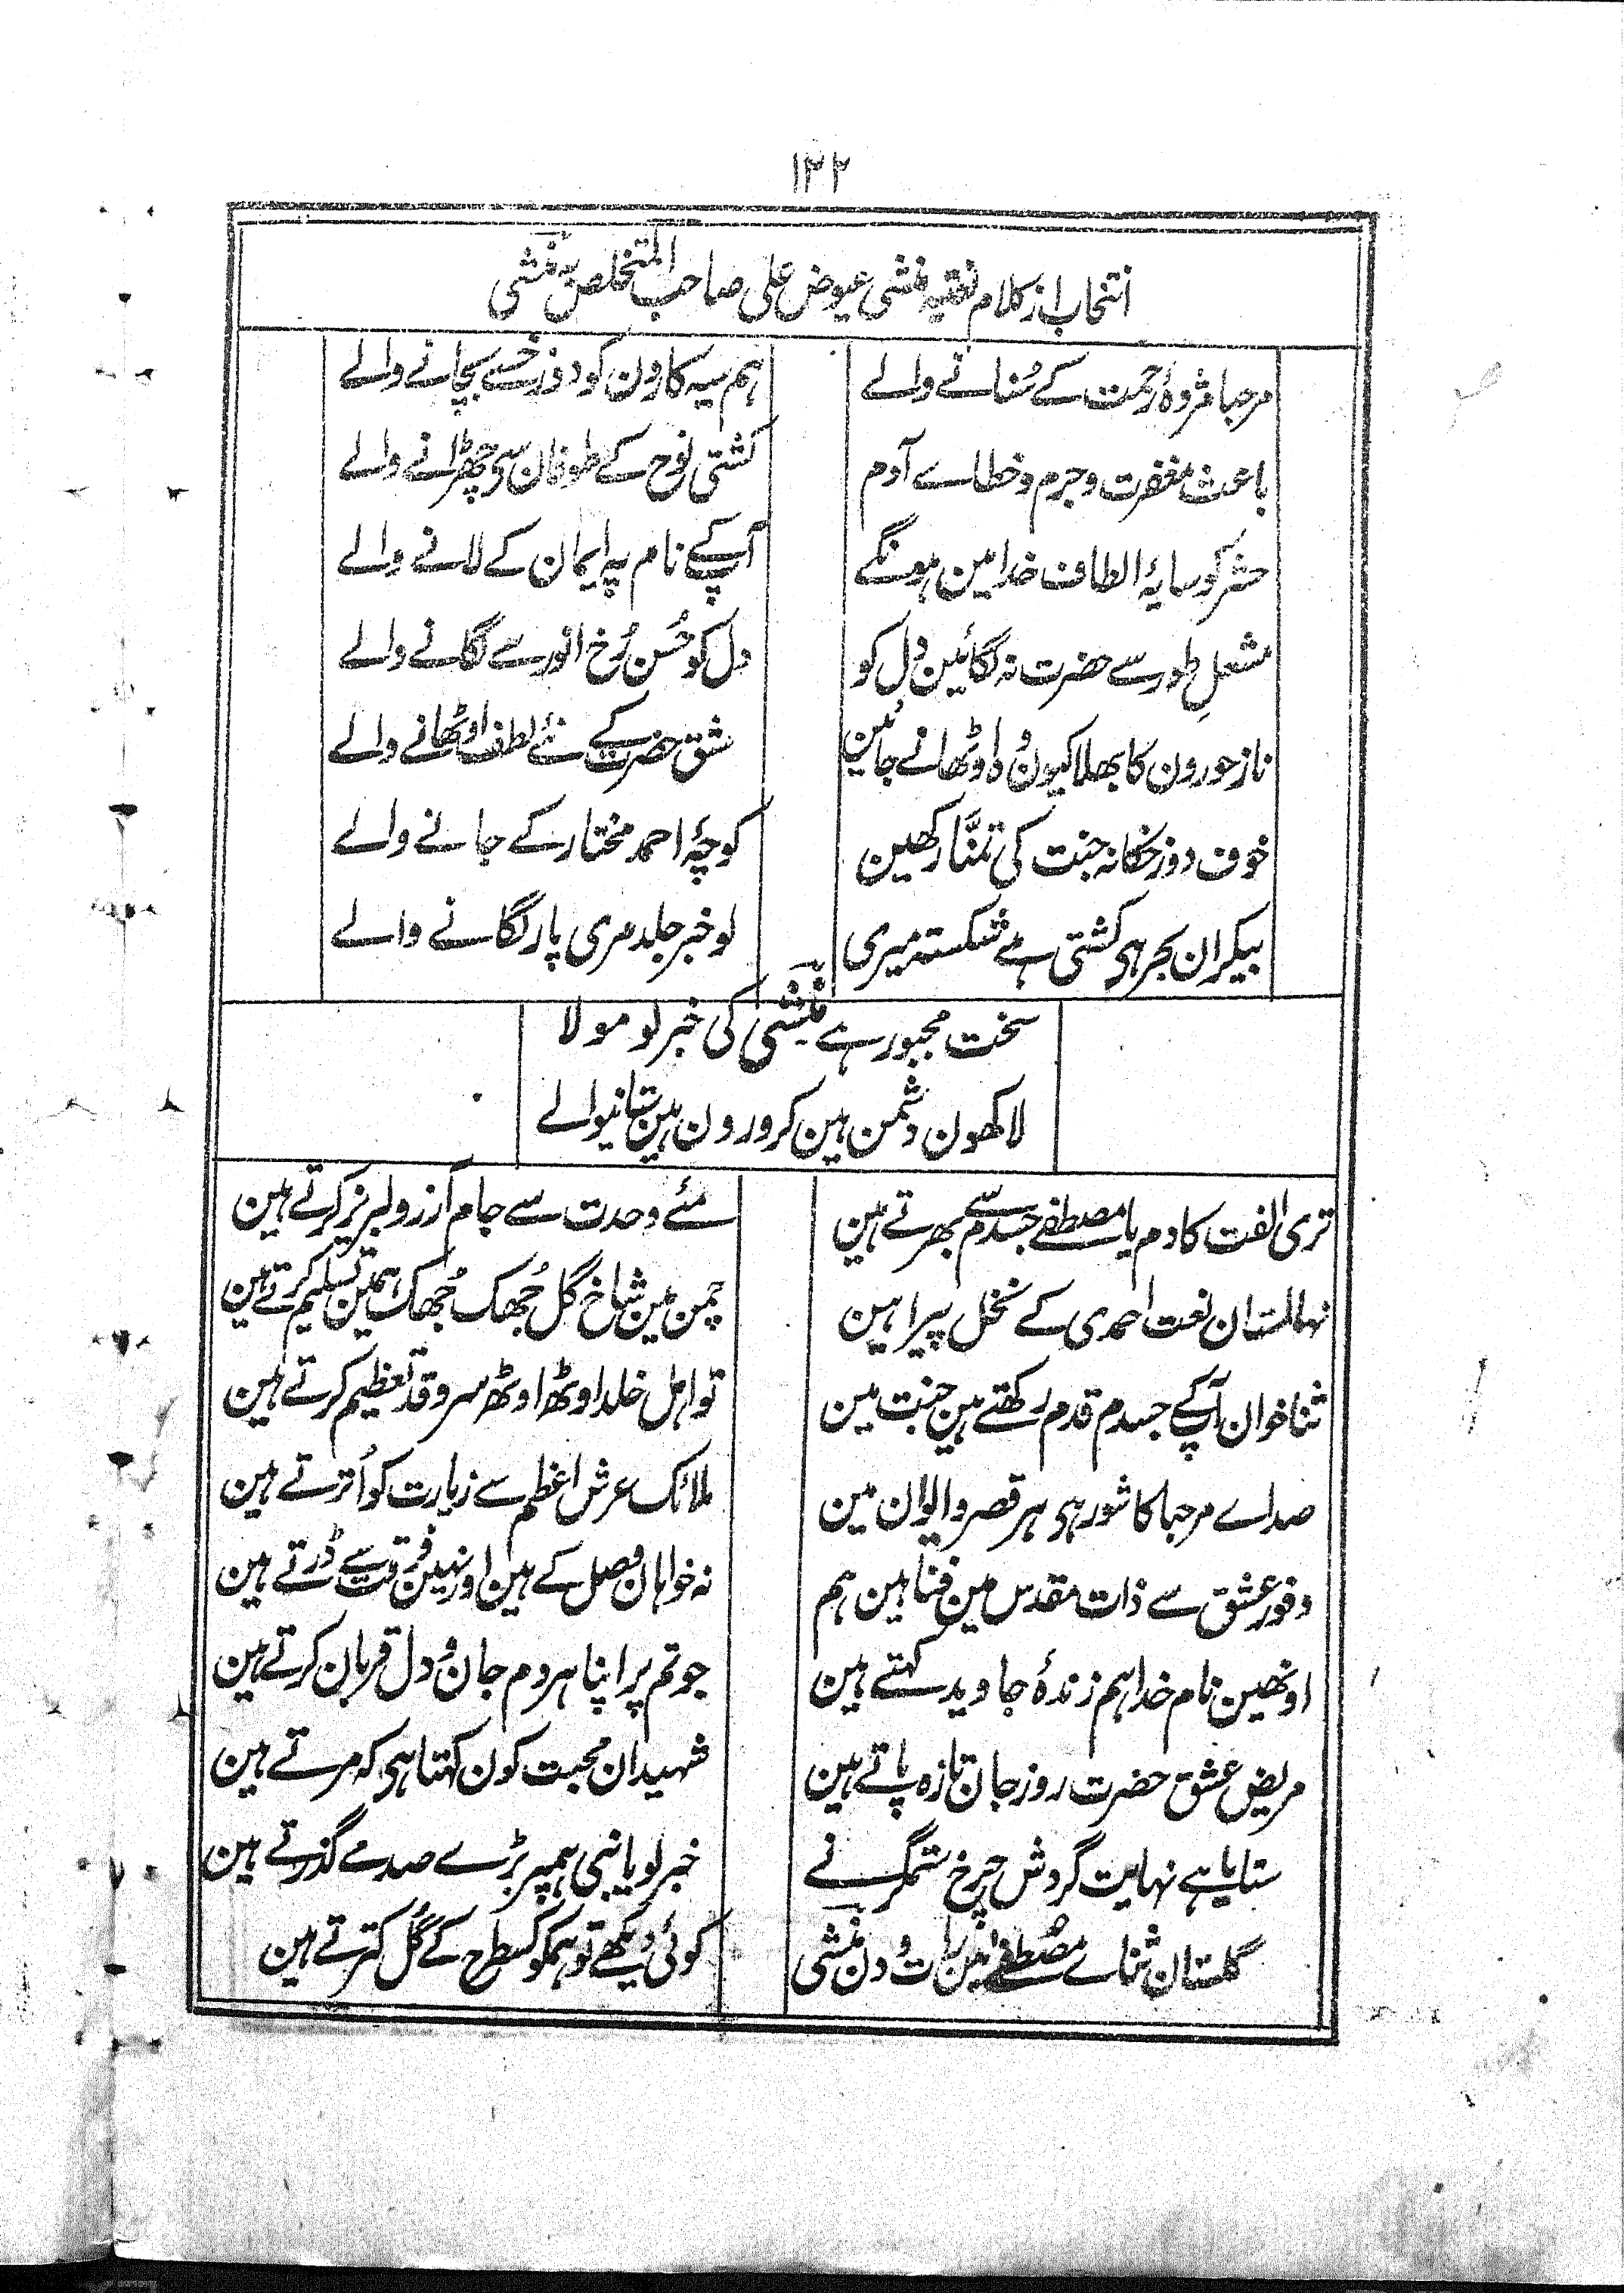 ۱۲۲
انتخاب از کلام نعتیہ منشی عیوض علی صاحب المتخلص بہ منشی
مرحبا مژدۂ رحمت کے سُنانے والے
ہم سیہ کارون کو دوزخ سے بچانے والے
باعث مغفرت و جرم و خطاے آدم
کشتی نوح کے طوفان سی چھڑانے والے
حشر کو سایۂ الطاف خدا مین ہونگے
آپکے نام پہ ایمان کے لانے والے
مشعلِ طور سے حضرت نہ لگائین دل کو
دل کو حُسن رُخ انور سے لگانے والے
ناز حورون کا بھلا کیون وُہ اوٹھانے جائین
عشق حضرت کے نئے لطف اوٹھانے والے
خوف دوزخکا نہ جنت کی تمنَّا رکھین
کوچۂ احمد مختار کے جانے والے
بیکران بحر ہی کشتی ہے شکستہ میری
لو خبر جلد مری پار لگانے والے
سخت مجبور ہے منشی کی خبر لو مولا
لاکھون دشمن ہین کرورون ہین ستانیوالے
تری الفت کا دم یا مصطفے جسدم سے بھرتے ہین
مئے وحدت سے جام آرزو لبریز کرتے ہین
نہالستان نعت احمدی کے نخل پیرا ہین
چمن مین شاخ گل جُھک جُھک ہمین تسلیم کرتے ہین
ثنا خوان آپکے جسدم قدم رکھتے ہین جنت مین
تو اہل خلد اوٹھ اوٹھ سرو قد تعظیم کرتے ہین
صداے مرحبا کا شور ہی ہر قصر و ایوان مین
ملائک عرش اعظم سے زیارت کو اُترتے ہین
وفور عشق سے ذات مقدس مین فنا ہین ہم
نہ خواہان وصل کے ہین اور نہین فرقت سے ڈرتے ہین
اونھین نام خدا ہم زندۂ جاوید کہتے ہین
جو تم پر اپنا ہر دم جان و دل قربان کرتے ہین
مریض عشق حضرت روز جان تازہ پاتے ہین
شہیدان محبت کون کہتا ہی کہ مرتے ہین
ستایا ہے نہایت گردش چرخ ستمگر نے
خبر لو یا نبی ہمپر بڑے صدمے گذرتے ہین
گلستان ثناے مصطفےٰ مین رات و دن منشی
کوئی دیکھے تو ہمکو کسطرح کے گُل کترتے ہین